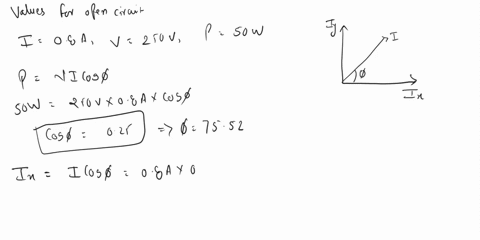 Values for open circuit
I = 0.8A, V = 250V, P = 50W
P = VI Cosϕ
50W = 250V × 0.8A × Cosϕ
Cosϕ = 0.25 => ϕ = 75.52
Ix = I Cosϕ = 0.8A × 0
Iy
I
ϕ
Ix